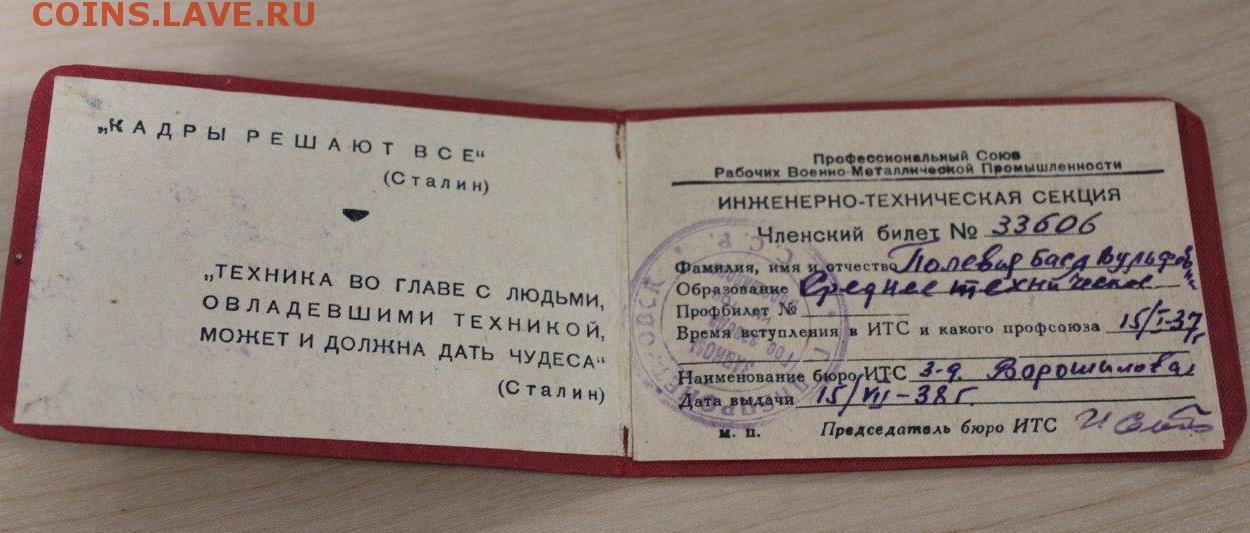 COINS.LAVE.RU
„КАДРЫ РЕШАЮТ ВСЕ“
(Сталин)
„ТЕХНИКА ВО ГЛАВЕ С ЛЮДЬМИ,
ОВЛАДЕВШИМИ ТЕХНИКОЙ,
МОЖЕТ И ДОЛЖНА ДАТЬ ЧУДЕСА“
(Сталин)
Профессиональный Союз
Рабочих Военно-Металлической Промышленности
ИНЖЕНЕРНО-ТЕХНИЧЕСКАЯ СЕКЦИЯ
Членский билет № 33606
Фамилия, имя и отчество Полевая Бася Вульфовн
Образование Среднее техническое
Профбилет №
Время вступления в ИТС и какого профсоюза 15/I-37г
Наименование бюро ИТС з-д. Ворошилова
Дата выдачи 15/VII-38г.
м. п. Председатель бюро ИТС